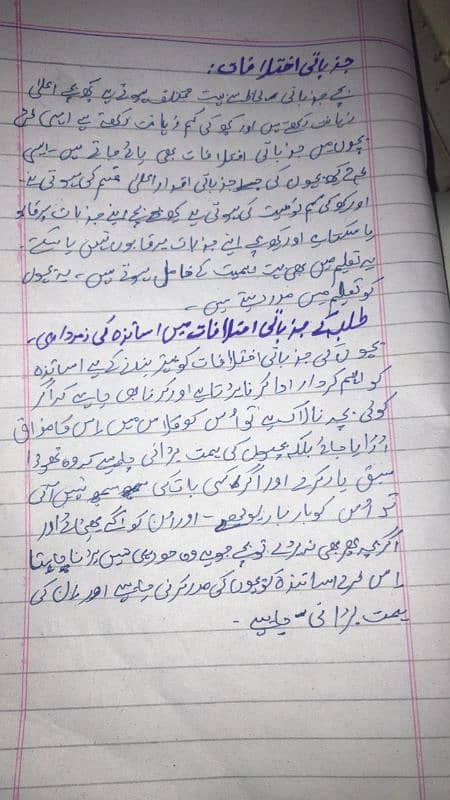 جذباتی اختلافات:
بچے جذباتی لحاظ سے بہت مختلف ہوتے ہیں کچھ بچے اعلیٰ
ذہانت رکھتے ہیں اور کچھ کی کم ذہانت رکھتے ہیں اسی طرح
بچوں میں جذباتی اختلافات بھی پائے جاتے ہیں۔ اسی
طرح کچھ بچوں کی جذباتی اقدار اعلیٰ قسم کی ہوتی ہے۔
اور کچھ کی کم نوعیت کی ہوتی ہے کچھ بچے اپنے جذبات پر قابو
پا سکتے اور کچھ بچے اپنے جذبات پر قابو نہیں پا سکتے۔
یہ تعلیم میں بھی بہت اہمیت کے حامل ہوتے ہیں۔ یہ بچوں
کو تعلیم میں مدد دیتے ہیں۔
طلبہ کے جذباتی اختلافات میں اساتذہ کی ذمہ داری۔
بچوں کی جذباتی اختلافات کو بہتر بنانے کے لیے اساتذہ
کو اہم کردار ادا کرنا پڑتا ہے اور کرنا بھی چاہیے کہ اگر
کوئی بچہ نالائق ہے تو اُس کو کلاس میں اس کا مذاق
اڑایا جائے بلکہ بچوں کی ہمت بڑھانی چاہیے کہ وہ تھوڑا
سبق یاد کرے اور اگر کسی بات کی سمجھ نہیں آتی
تو اُس کو بار بار اور اُن کو آگے بٹھائے اور
اگر بچہ پھر بھی نہ پڑھے تو بچے وہ خود ہی نہیں پڑھنا چاہتا
اس طرح اساتذہ کو بچوں کی مدد کرنی چاہیے اور ان کی
ہمت بڑھانی چاہیے۔